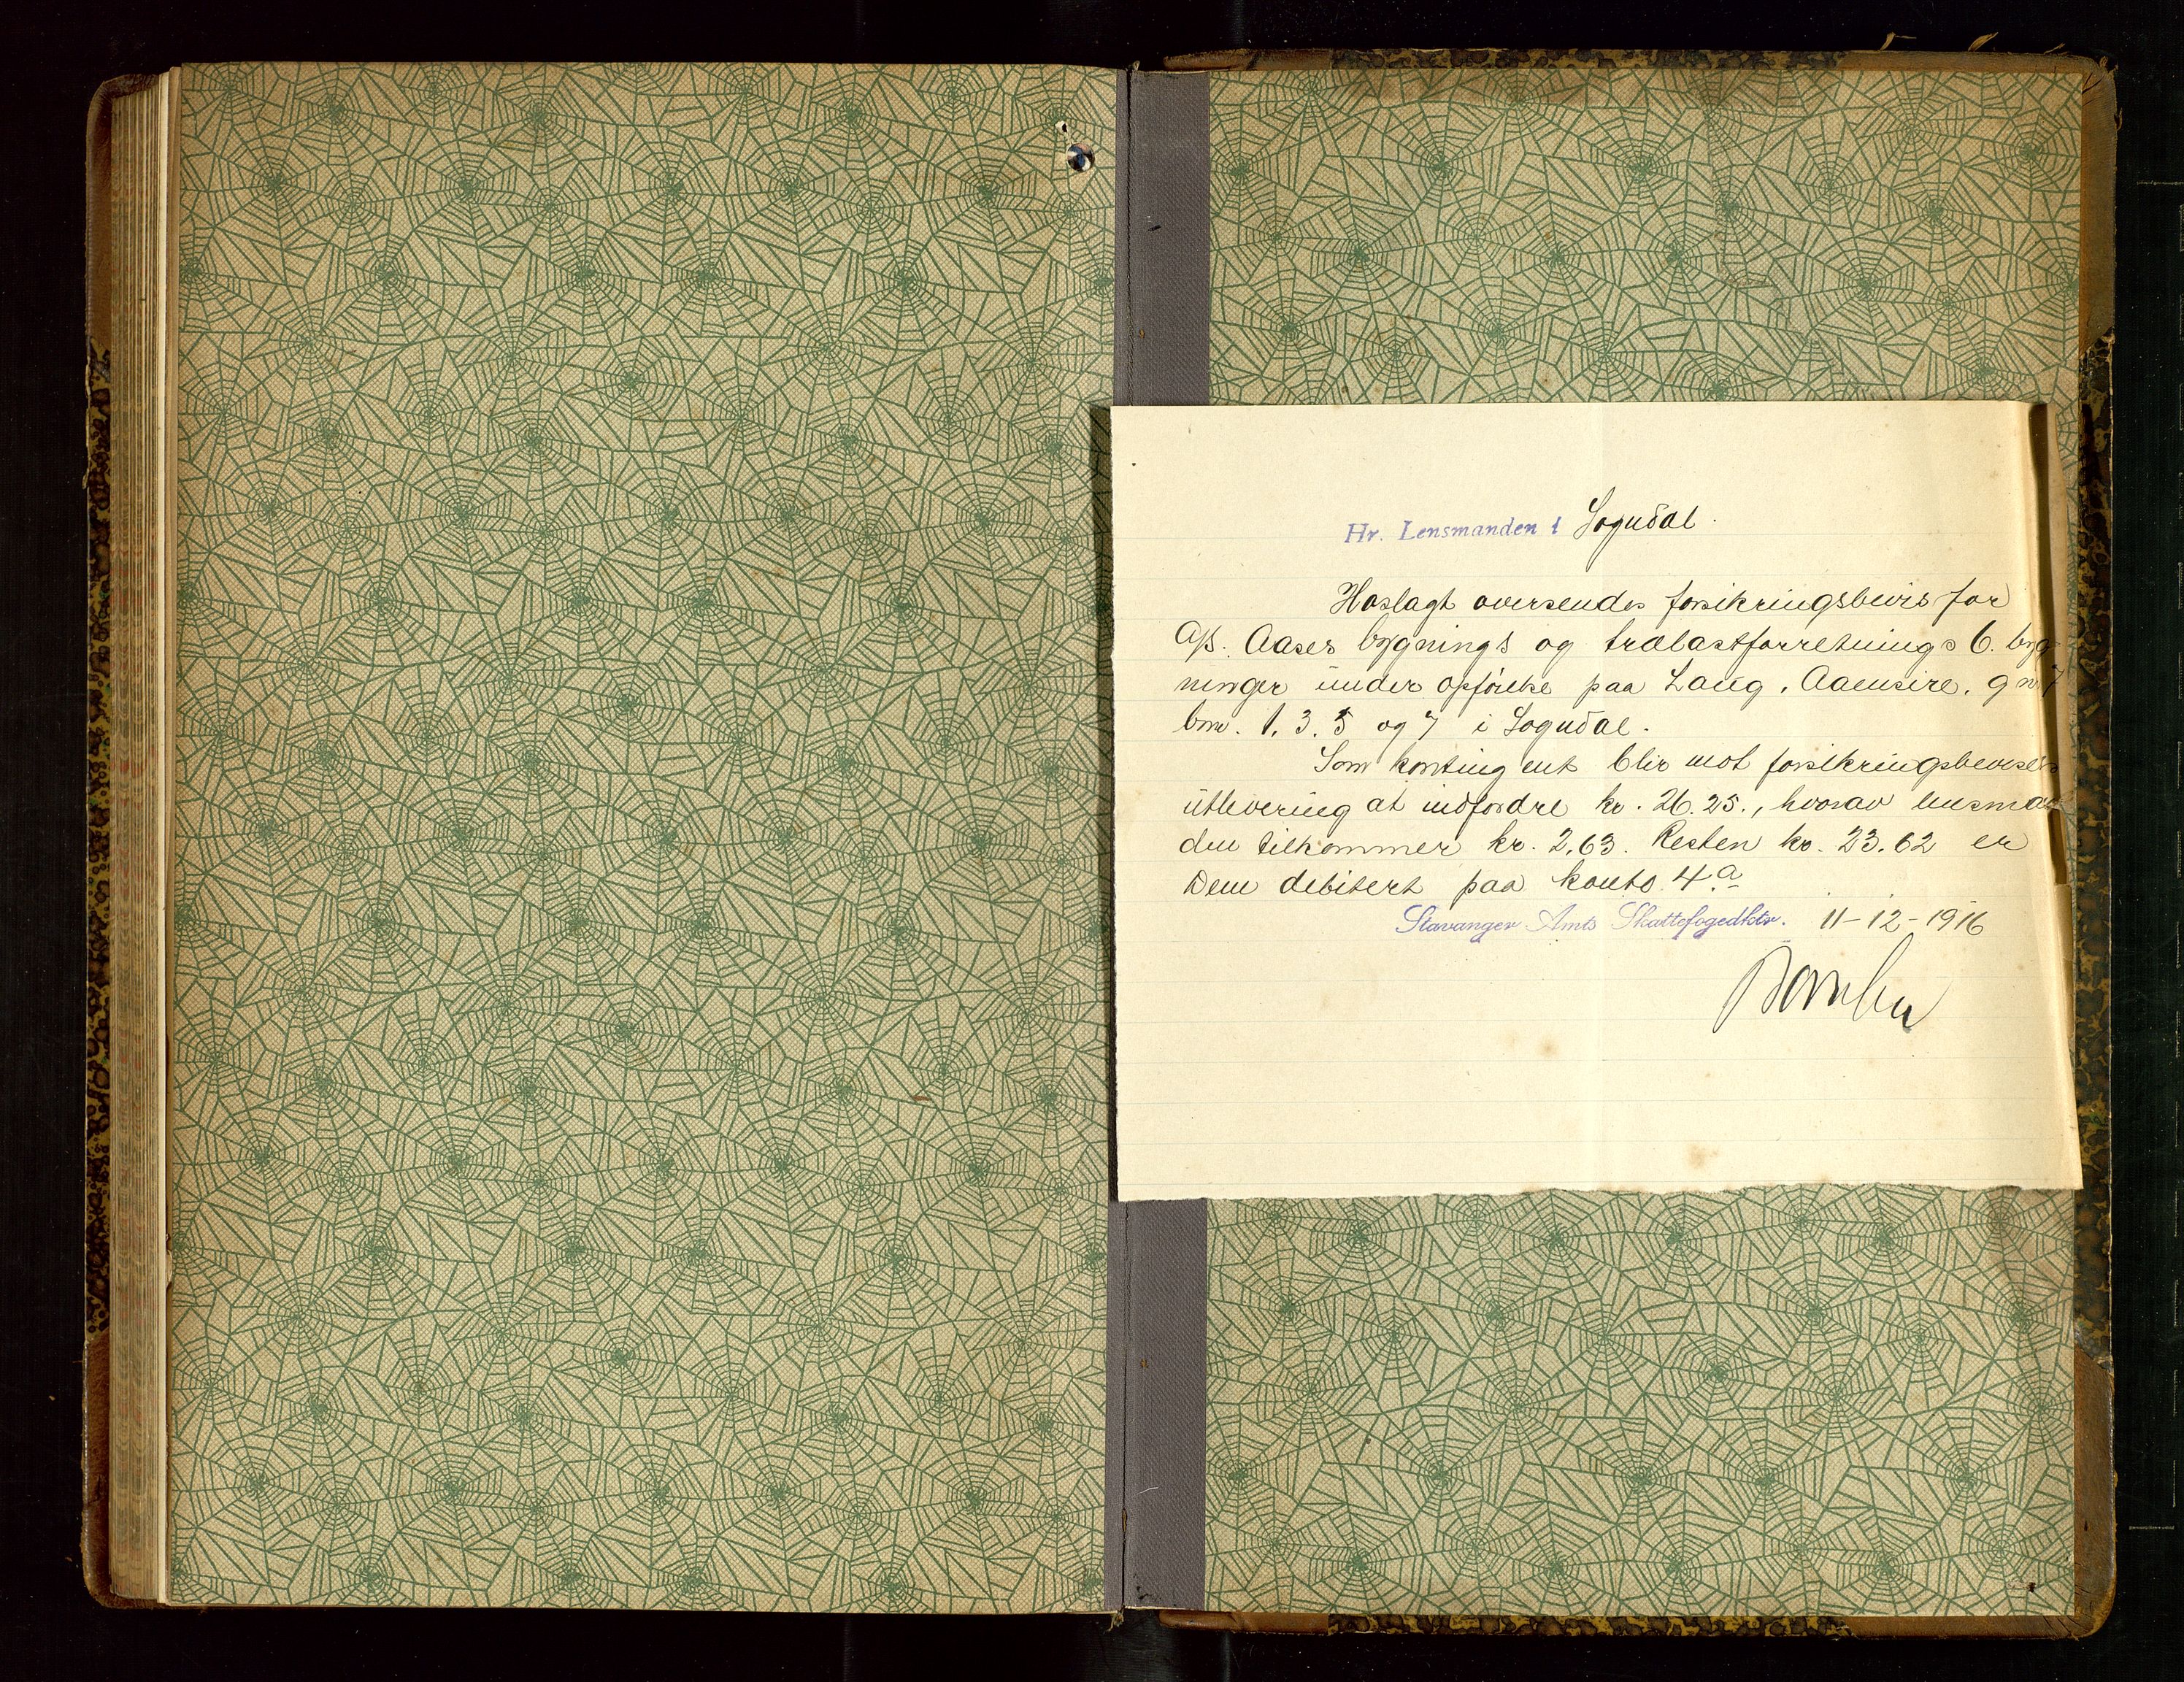 Hr. Lensmanden i Sogndal.
Hoslagt oversendes forsikringsbevis for
A/S. Aases bygnings og trælastforretnings 6. byg-
ninger under opførelse paa Laug, Aaensire, gnr 7
bnr. 1, 3, 5 og 7 i Sogndal.
Som kontingent blir mot forsikringsbevisets
utlevering at indfordre kr. 26.25., hvorav lensman
den tilkommer kr. 2,63. Resten kr. 23.62 er
Dem debitert paa konto 4a
Stavanger Amts Skattefogedktr. 11-12-1916